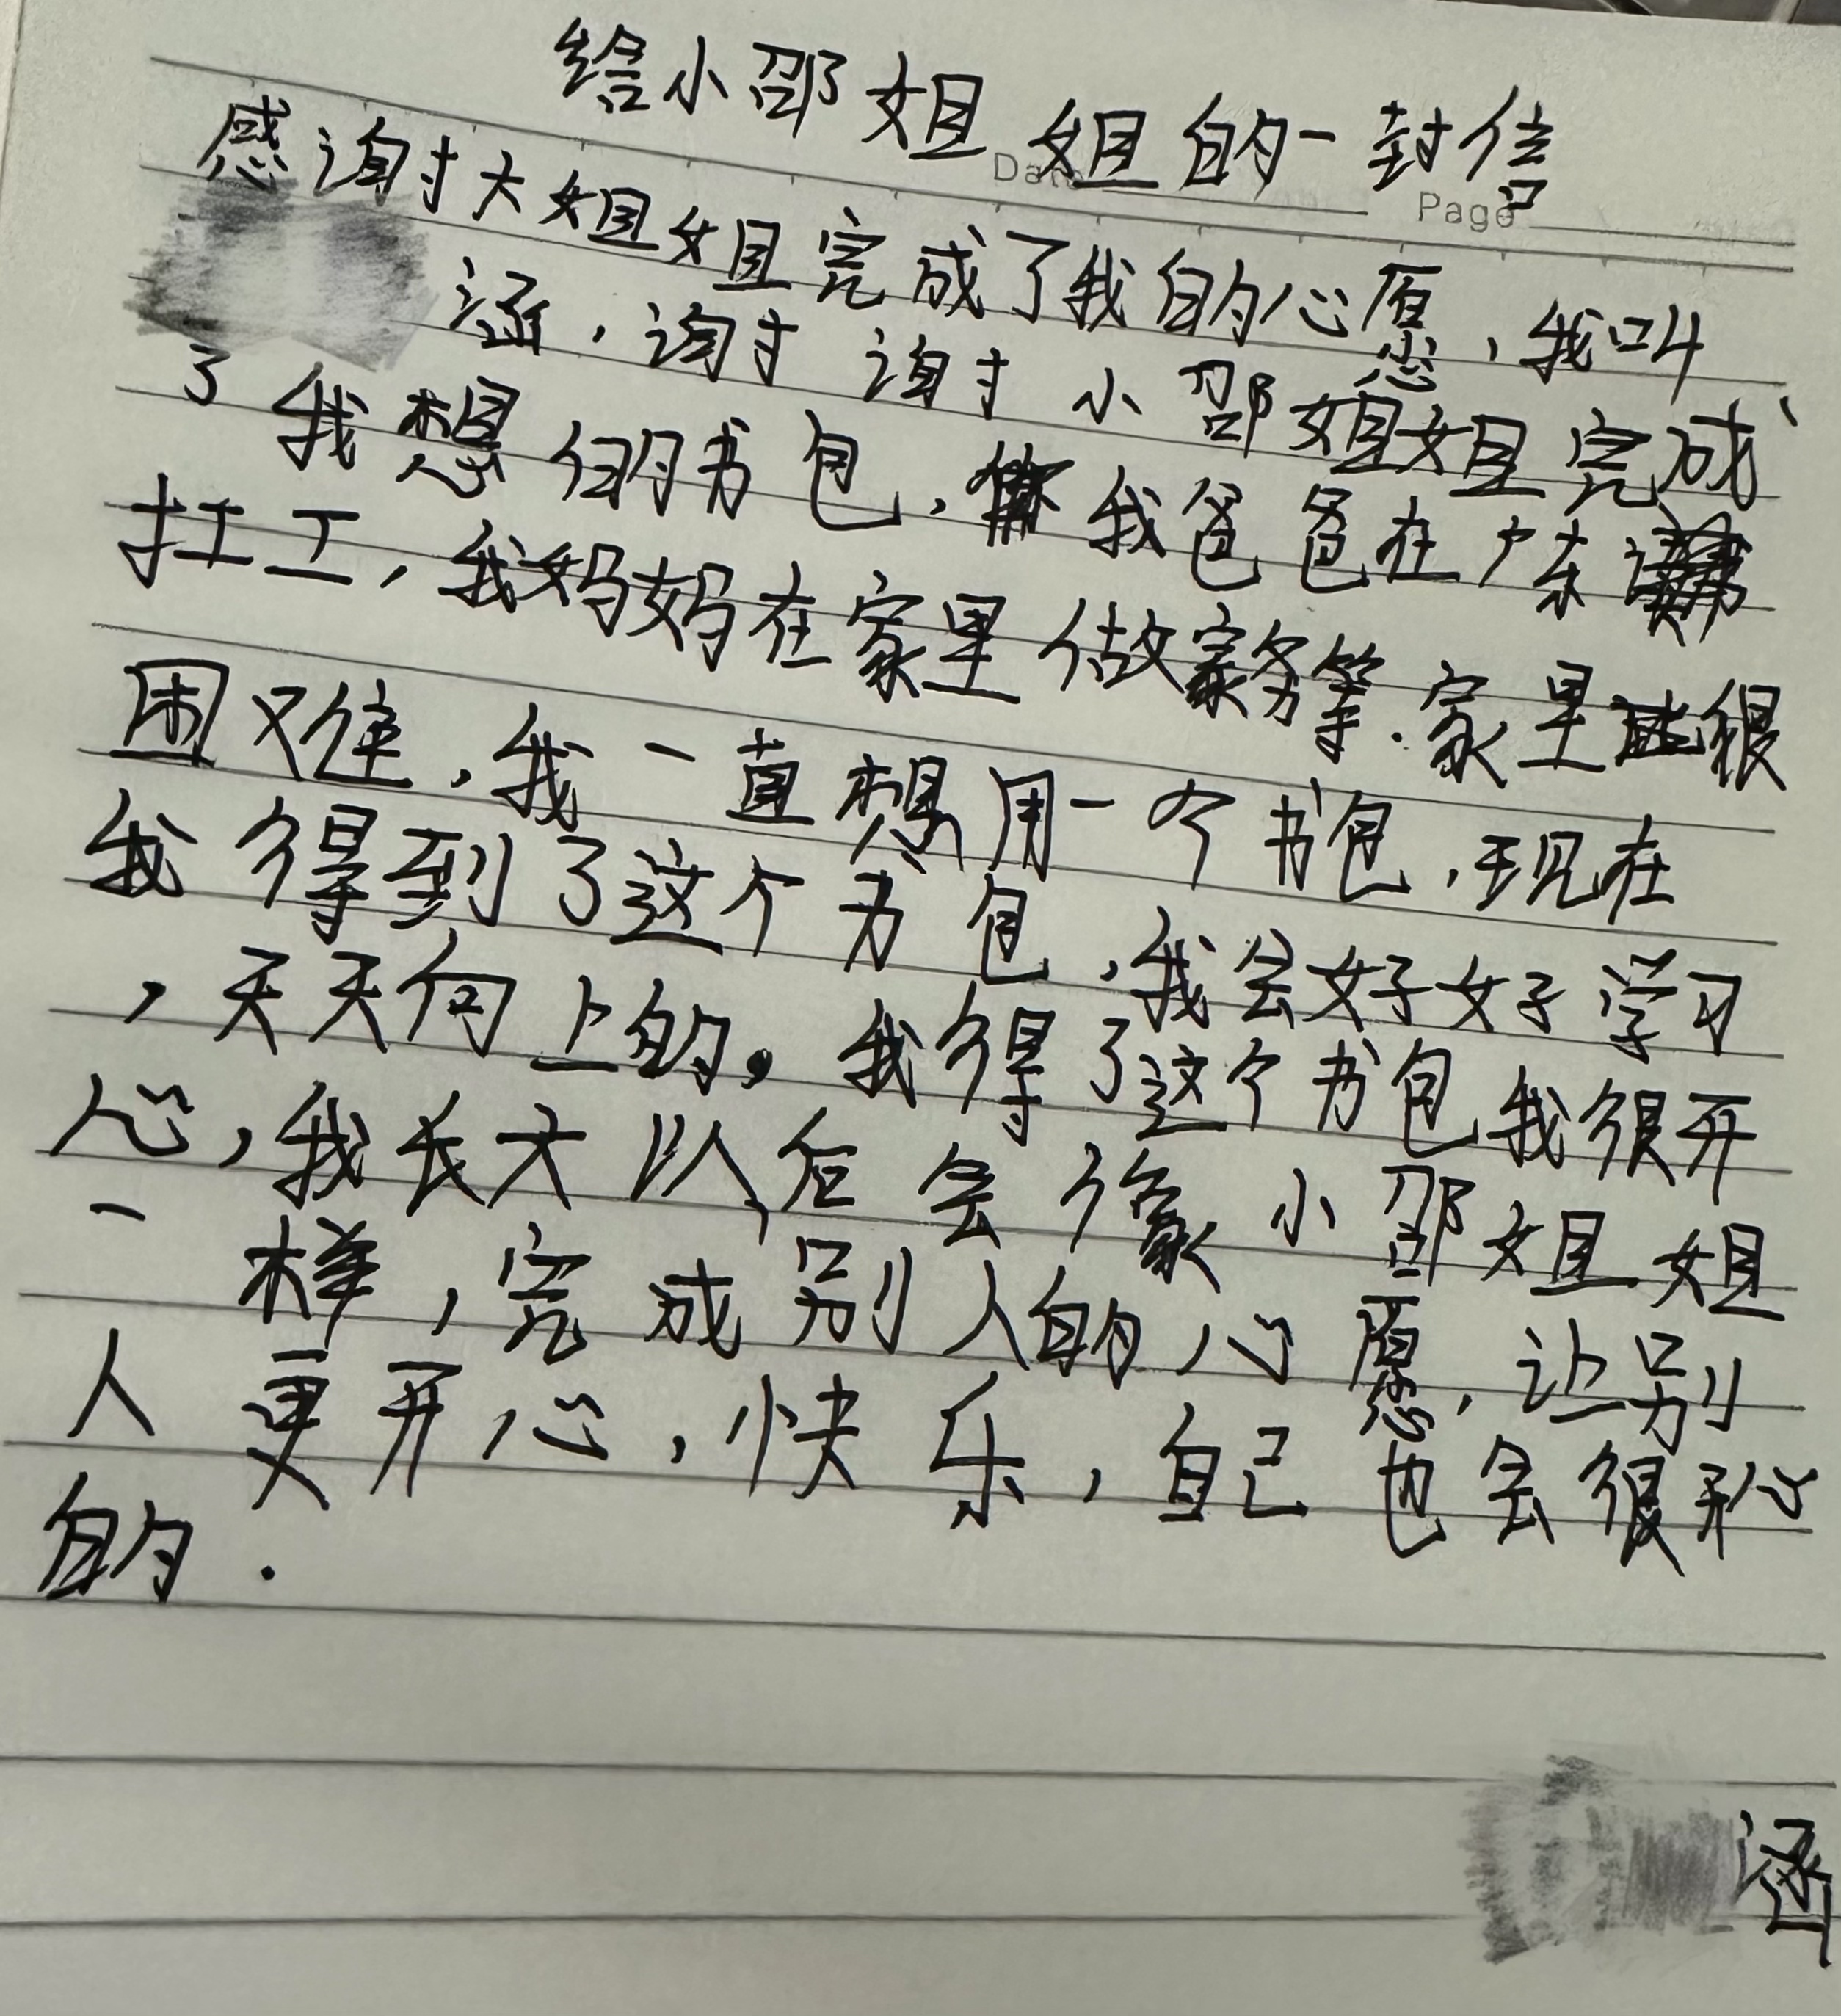 给小邵姐姐的一封信
Date
Page
感谢大姐姐完成了我的心愿，我叫
涵，谢谢小邵姐姐完成
了我想的书包，我爸爸在广东
打工，我妈妈在家里做家务等.家里很
困难，我一直想用一个书包，现在
我得到了这个书包，我会好好学习
，天天向上的。我得了这个书包我很开
心，我长大以后会像小邵姐姐
一样，完成别人的心愿，让别
人更开心，快乐，自己也会很开心
的.
涵